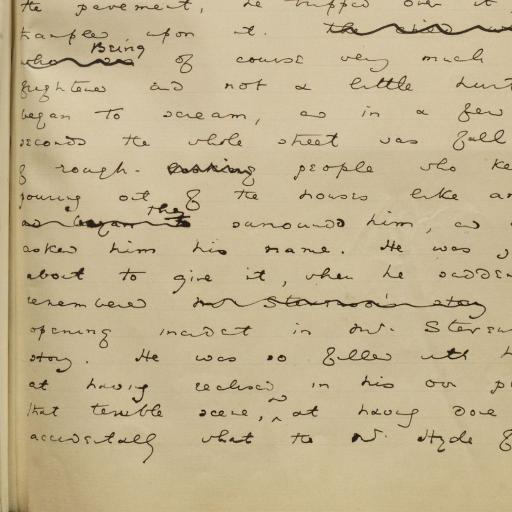 the pavement, he tripped over it
trampled upon it. the child w
who was Being of course very much
frightened and not a little hurt
began to scream, and in a few
seconds the whole street was full
of rough-looking people who ke
pouring out of the houses like an
as began to they surround him, and
asked him his name. He was j
about to give it, when he sudden
remembered Mr Stevenson's story
opening incident in Mr. Steven
story. He was so filled with h
at having realised in his own p
that terrible scene, and at having done
accidentally what the Mr. Hyde of